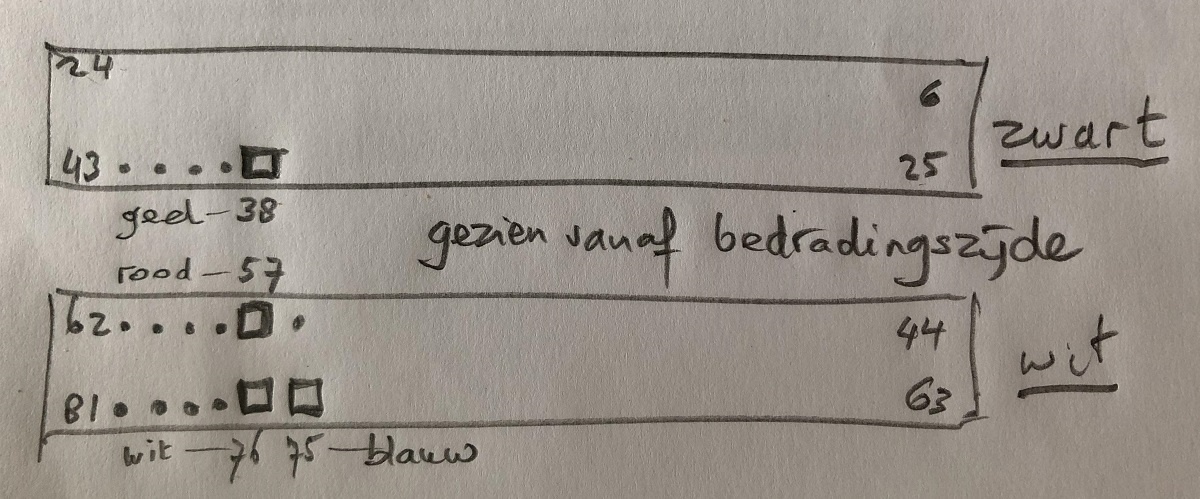 24
6
zwart
43 . . . . 25
geel - 38
gezien vanaf bedradingszijde
rood - 57
62 . . . . . 44
wit
81 . . . . 63
wit - 76 75 - blauw